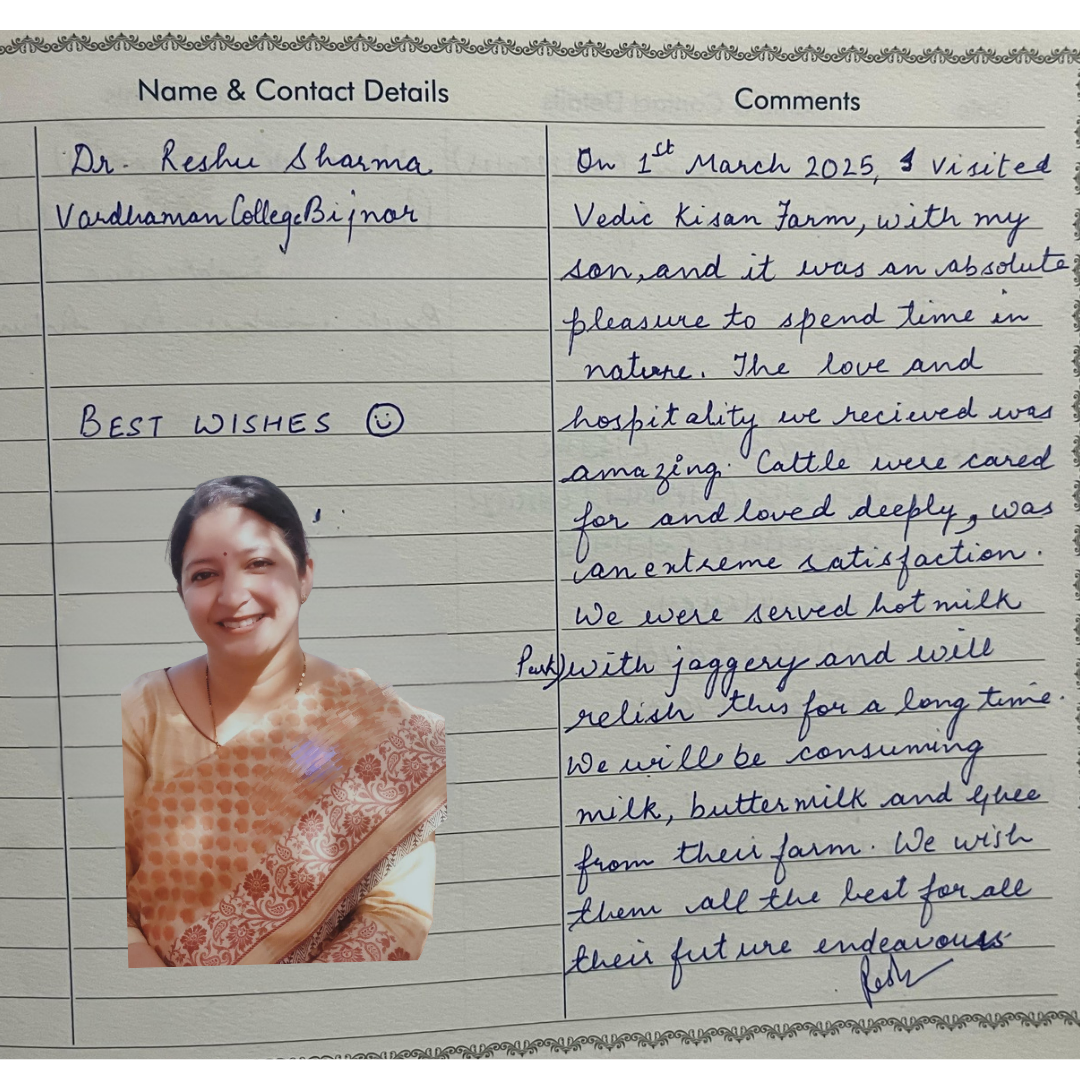 Name & Contact Details
Comments
Dr. Reshu Sharma
Vardhaman College Bijnor
BEST WISHES
On 1st March 2025, I visited
Vedic Kisan Farm, with my
son, and it was an absolute
pleasure to spend time in
nature. The love and
hospitality we recieved was
amazing. Cattle were cared
for and loved deeply, was
an extreme satisfaction.
We were served hot milk
with jaggery and will
relish this for a long time.
We will be consuming
milk, buttermilk and Ghee
from their farm. We wish
them all the best for all
their future endeavours